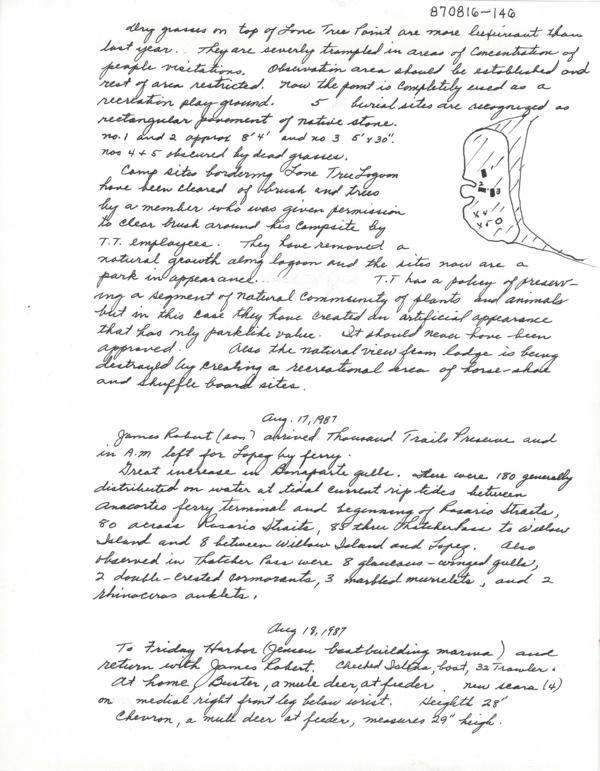 870816-146
dry grasses on top of Lone Tree Point are more luxureant than
last year. They are severly trampled in areas of concentration of
people visitations. Observation area should be established and
rest of area restricted. Now the point is completely used as a
recreation play ground. 5 burial sites are recognized as
rectangular pavement of native stone.
no. 1 and 2 approx 8' 4' and no 3 5' x 30".
nos 4 + 5 obscured by dead grasses.
Camp sites bordering Lone Tree Lagoon
have been cleared of brush and trees
by a member who was given permission
to clear brush around his campsite by
T.T. employees. They have removed a
natural growth along lagoon and the sites now are a
park in appearance. T.T has a policy of preserv-
ing a segment of natural community of plants and animals
but in this case they have created an artificial appearance
that has only parklike value. It should never have been
approved. Also the natural view from lodge is being
destroyed by creating a recreational area of horse-shoe
and shuffle board sites.
Aug. 17, 1987
James Robert (son) arrived Thousand Trails Preserve and
in A.M left for Lopez by ferry.
Great increase in Bonaparte gulls. There were 180 generally
distributed on water at tidal current rip tides between
Anacortes ferry terminal and beginning of Rosario Straits,
80 across Rosario Straits, 85 thru Thatcher Pass to Willow
Island and 8 between Willow Island and Lopez. Also
observed in Thatcher Pass were 8 glaucous-winged gulls,
2 double-crested cormorants, 3 marbled murrelets, and 2
rhinoceros auklets.
Aug 18, 1987
To Friday Harbor (Jensen boatbuilding marina) and
return with James Robert. Checked boat, 32 Trawler.
At home, Buster, a mule deer, at feeder. new scars (4)
on medial right front leg below wrist. Heighth 28"
Chevron, a mule deer at feeder, measures 29" heigh.